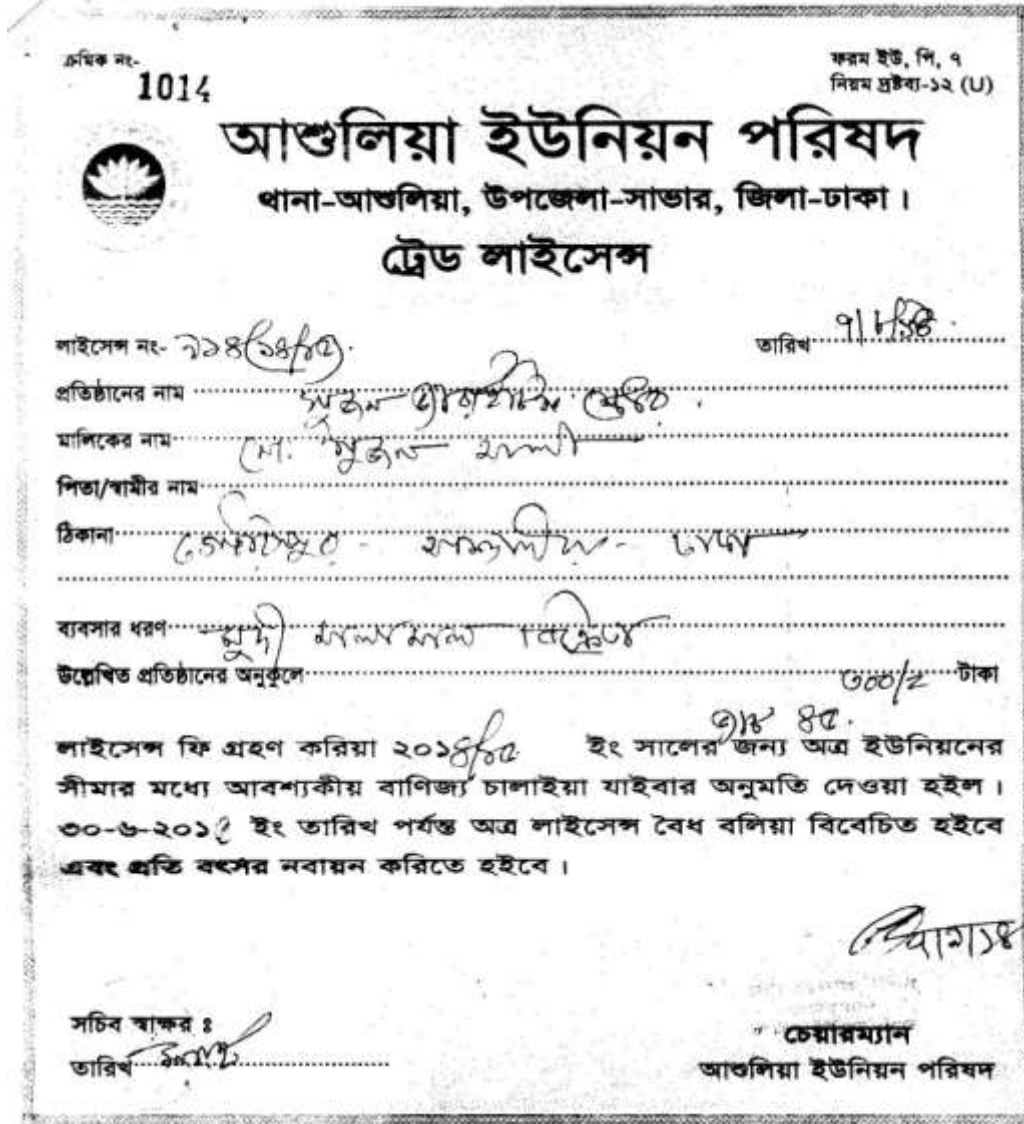 ক্রমিক নং-
ফরম ইউ, পি, ৭
1014
নিয়ম দ্রষ্টব্য-১২ (U)
আশুলিয়া ইউনিয়ন পরিষদ
থানা-আশুলিয়া, উপজেলা-সাভার, জিলা-ঢাকা।
ট্রেড লাইসেন্স
লাইসেন্স নং- ৭১৪(১৪/১৫) তারিখ
প্রতিষ্ঠানের নাম সুজন ষ্টোর
মালিকের নাম মো: সুজন
পিতা/স্বামীর নাম
ঠিকানা গৌরিপুর - আশুলিয়া - ঢাকা
ব্যবসার ধরণ মুদী মালামাল বিক্রেতা
উল্লেখিত প্রতিষ্ঠানের অনুকূলে ৩০০/= টাকা
লাইসেন্স ফি গ্রহণ করিয়া ২০১৪/১৫ ইং সালের জন্য অত্র ইউনিয়নের
সীমার মধ্যে আবশ্যকীয় বাণিজ্য চালাইয়া যাইবার অনুমতি দেওয়া হইল।
৩০-৬-২০১৫ ইং তারিখ পর্যন্ত অত্র লাইসেন্স বৈধ বলিয়া বিবেচিত হইবে
এবং প্রতি বৎসর নবায়ন করিতে হইবে।
সচিব স্বাক্ষর ঃ
চেয়ারম্যান
তারিখ
আশুলিয়া ইউনিয়ন পরিষদ